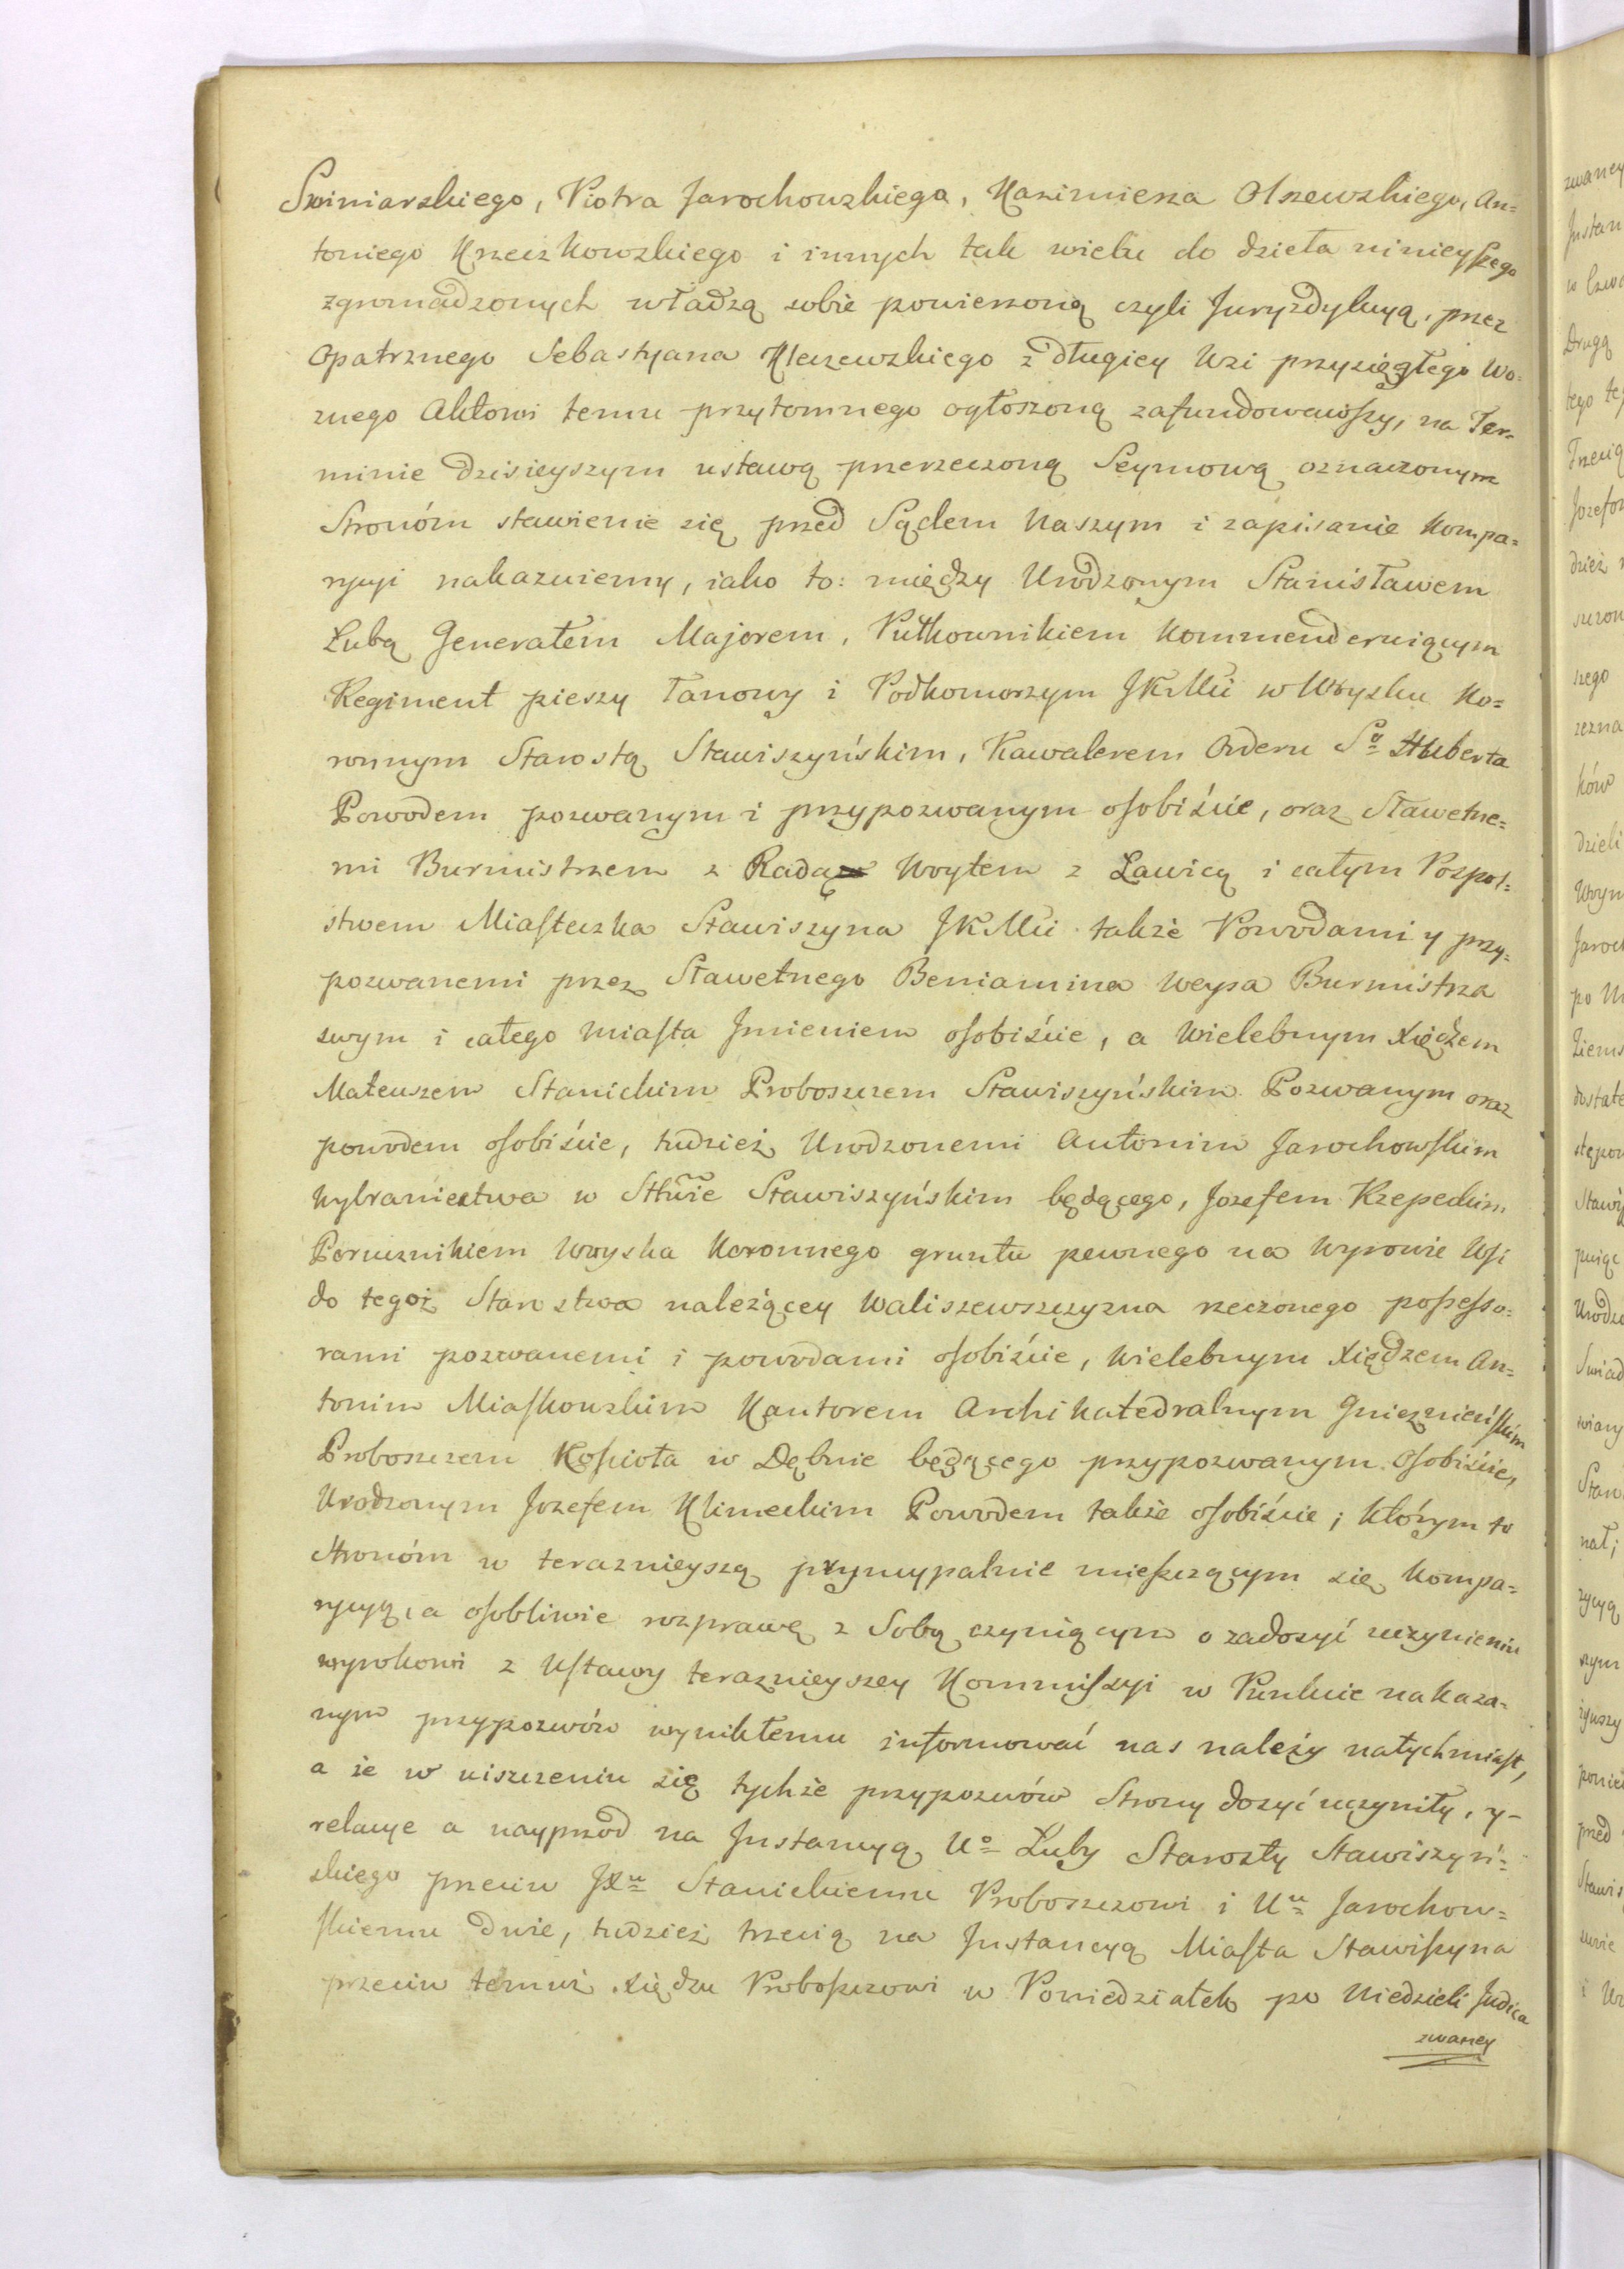 Swiniarskiego, Piotra Jarochowskiego, Kazimierza Olszewskiego, An=
toniego Krzeczkowskiego i innych tak wielu do dzieła ninieyszego
zgromadzonych władzą sobie powierzoną czyli Juryzdykcyą, przez
Opatrznego Sebastyana Kleczewskiego z Długiey Wsi przysięgłego Wo=
znego Aktowi temu przytomnego ogłoszoną zafundowawszy, na Ter=
minie dzisieyszym ustawą przerzeczoną Seymową oznaczonym
Stronóm stawienie się przed Sądem Naszym i zapisanie Kompa=
rycyi nakazuiemy, iako to: między Urodzonym Stanisławem
Lubą Generałem Majorem, Pułkownikiem Kommenderuiącym
Regiment pieszy Łanowy i Podkomorzym JKMci w Woysku Ko=
ronnym Starostą Stawiszyńskim, Kawalerem Orderu Sgo Huberta
Powodem pozwanym i przypozwanym osobiście, oraz Sławetne=
mi Burmistrzem z Radą Woytem z Ławicą i całym Pospol=
stwem Miasteczka Stawiszyna JKMci także Powodami y przy=
pozwanemi przez Sławetnego Beniamina Weysa Burmistrza
swym i całego Miasta Jmieniem osobiście, a Wielebnym Xiędzem
Mateuszem Stanickim Proboszczem Stawiszyńskim Pozwanym oraz
powodem osobiście, tudzież Urodzonemi Antonim Jarochowskim
Wybraniectwa w Sttwie Stawiszyńskim będącego, Jozefem Rzepeckim
Porucznikiem Woyska Koronnego gruntu pewnego na Wyrowie Wsi
do tegoż Starostwa należącey Waliszewszczyzna rzeczonego possesso=
rami pozwanemi i powodami osobiście, Wielebnym Xiędzem An=
tonim Miaskowskim Kantorem Archikatedralnym Gnieznieńskim
Proboszczem Kościoła w Dębnie będącego przypozwanym Osobiście,
Urodzonym Jozefem Klimeckim Powodem także osobiście; Którym to
stronóm w teraznieyszą pryncypalnie mieszczącym się Kompa=
rycyą, a osobliwie rozprawę z Sobą czyniącym o zadosyć uczynieniu
wyrokowi z Ustawy teraznieyszey Kommissyi w Punkcie nakaza=
nym przypozwów wynikłemu informować nas należy natychmiast,
a że w uiszczeniu się tychże przypozwów Strony dosyć uczyniły, y-
relacye a nayprzod na Jnstancyą Uo Luby Starosty Stawiszyń=
skiego przeciw JXu Stanickiemu Proboszczowi i Uu Jarochow=
skiemu dwie, tudzież trzecią na Jnstancyą Miasta Stawiszyna
przeciw temuż Xiędzu Proboszczowi w Poniedziałek po Niedzieli Judica
zwaney